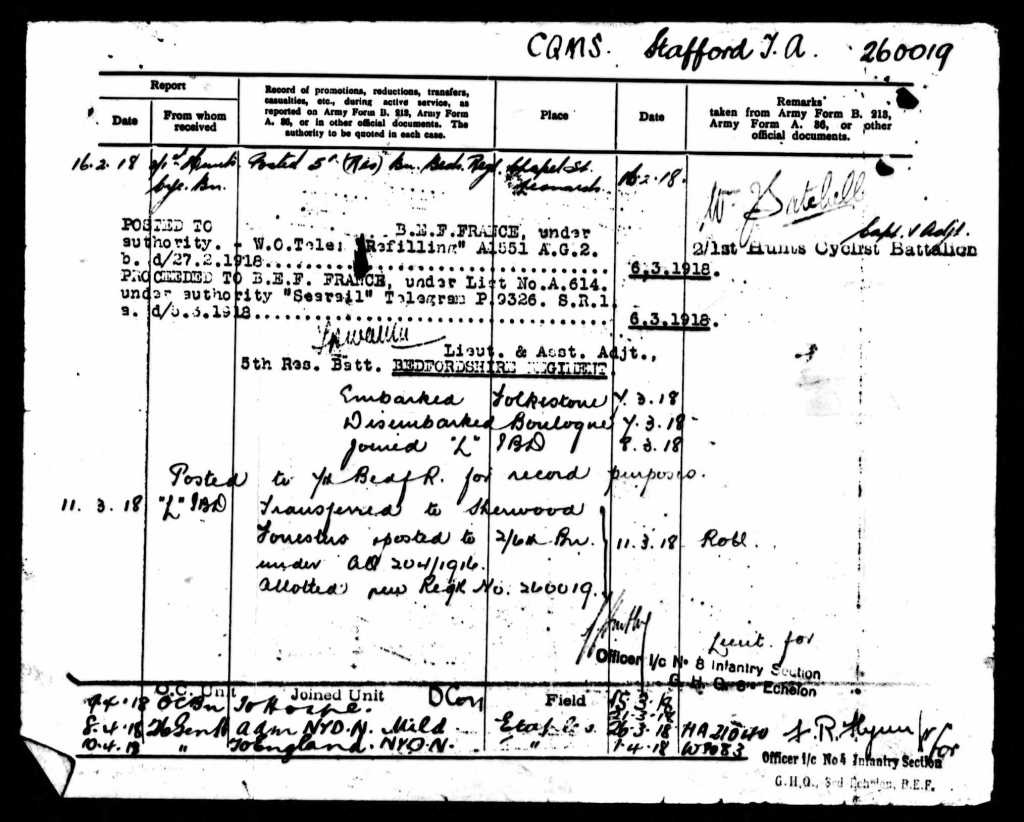 CQMS. Stafford T. A. 260019
Report
Date
From whom received
Record of promotions, reductions, transfers,
casualties, etc., during active service, as
reported on Army Form B. 213, Army Form
A. 36, or in other official documents. The
authority to be quoted in each case.
Place
Date
Remarks
taken from Army Form B. 213,
Army Form A. 36, or other
official documents.
16.2.18 2/1st Hunts Posted 5th (Res) Bn. Beds. Regt. Chapel St. 16.2.18.
Cyc. Bn. Leonards
Capt. & Adjt.
2/1st Hunts Cyclist Battalion
POSTED TO B.E.F. FRANCE, under
authority. - W.O. Tele: "Refilling" A1551 A.G.2.
b. d/27.2.1918 6.3.1918.
PROCEEDED TO B.E.F. FRANCE, under List No. A.614.
under authority "Searail" Telegram P.9326. S.R.1
a. d/5.3.1918 6.3.1918.
Lieut. & Asst. Adjt.,
5th Res. Batt. BEDFORDSHIRE REGIMENT.
Embarked Folkestone 7.3.18
Disembarked Boulogne 7.3.18
Joined "L" IBD 8.3.18
Posted to Bedf R. for record purposes.
11.3.18 "L" IBD Transferred to Sherwood
Forresters & posted to 2/6th Bn. 11.3.18 Robl.
under AO 204/1916.
Allotted new Regtl No. 260019.
Lieut. for
Officer i/c No 8 Infantry Section
G. H. Q. 3rd Echelon
O.C. Unit Joined Unit DCon Field 15.3.18
9.4.18 OC Bn To Hospl.
8.4.18 Gen H adm NYD.N. Mild Etaples 26.3.18 HA21040
10.4.18 " To England. NYD.N. " 1.4.18 W9083
Officer i/c No 4 Infantry Section
G.H.Q., 3rd Echelon, B.E.F.